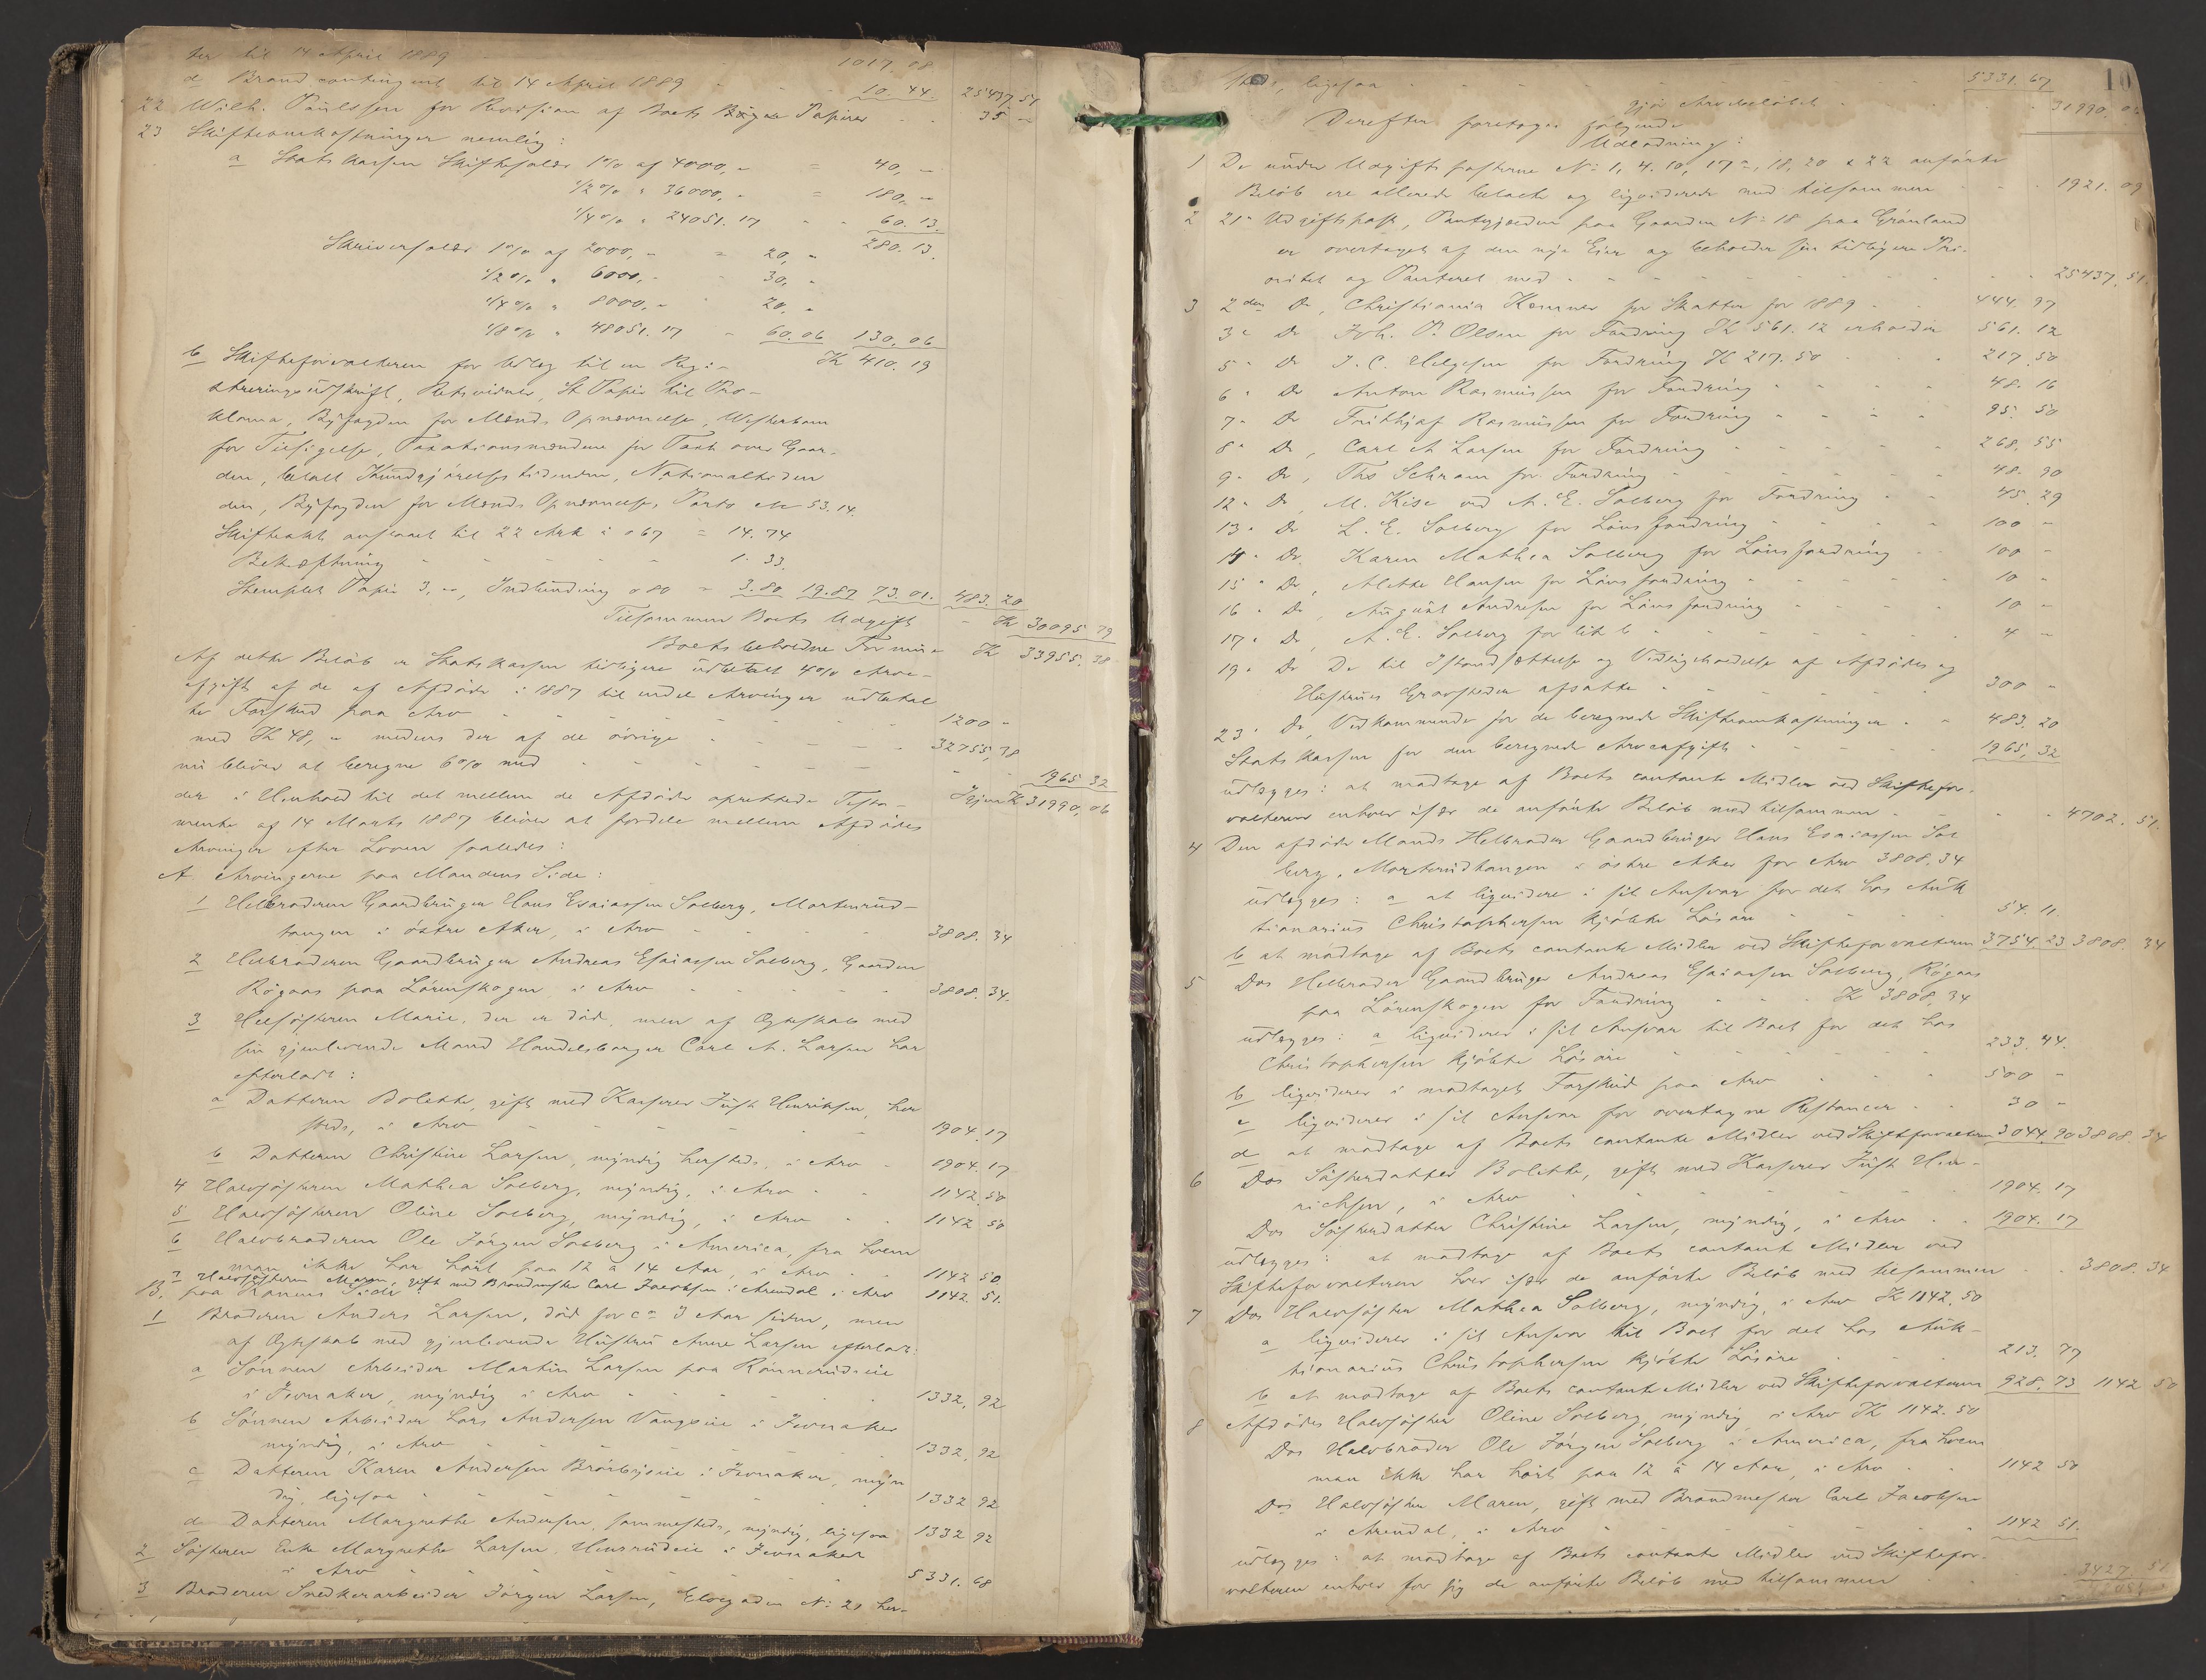 ter til 14 April 1889 - 1017. 08
d Brandcontingent til 14 April 1889 - - 10. 44. 25437 51
22 Wilh. Paulssen for Revision af Boets Bøger Papirer - - 35 -
23 Skifteomkostninger nemlig:
a Statskassen Skiftesalær 1% af 4000, - = 40, -
1/2 % " 36000, - = 180, -
1/4 % " 24051. 17 - - 60. 13.
280. 13.
Skriversalær 1% af 2000, - = 20, -
1/2 % " 6000, - - 30, -
1/4 % " 8000, - - 20, -
1/8 % " 48051. 17 - 60. 06 130, 06
Kr 410. 19
b Skifteforvalteren for Udlæg til en Regi-
streringsudskrift, Retsvidner, St Papir til Pro-
klama, Byfogden for Mænds Opnævnelse,
for Tilsigelse, Taxationsmændene for Taxt over Gaar-
den, betalt Kundgjørelsestidenden, Nationaltiden
den, Byfogden for Mænds Opnævnelse, Porto etc 53. 14.
Skifteakt anslaaet til 22 Ark à 067 = 14. 74
Bekræftning - - - - 1. 33.
Stemplet Papir 3, -, Indbinding 0 80 = 3. 80 19. 87 73. 01. 483. 20
Tilsammen Boets Udgift - Kr 30095 79
Boets beholdne Formue Kr 33955. 38
Af dette Beløb er Statskassen tidligere udbetalt 4% Arve-
afgift af de af Afdøde i 1887 til endel Arvinger udbetal
te Forskud paa Arv - - - - 1200 -
med Kr 48, - medens der af de øvrige - - - 32755, 38
nu bliver at beregne 6% med - - - - 1965 32
Igjen Kr 31990, 06
der i Henhold til det mellem de Afdøde oprettede Testa-
mente af 14 Marts 1887 bliver at fordele mellem Afdødes
Arvinger efter Loven saaledes:
A. Arvingerne paa Mandens Side:
1 Helbroderen Gaardbruger Hans Esaiassen Solberg, Martenrud-
tangen i østre Aker, i Arv - - - 3808. 34
2 Helbroderen Gaardbruger Andreas Esaiassen Solberg, Gaarden
Rögaas paa Lörenskogen, i Arv - - - 3808. 34.
3 Helsøsteren Marie, der er død, men af Ægteskab med
sin gjenlevende Mand Handelsborger Carl A. Larsen har
efterladt:
a Datteren Bolette, gift med Kasserer Just Henriksen, her
steds, i Arv - - - - 1904. 17
b Datteren Christine Larsen, myndig hersteds, i Arv - 1904. 17
4 Halvsøsteren Mathea Solberg, myndig, i Arv - - 1142. 50
5 Halvsøsteren Oline Solberg, myndig, i Arv - - 1142. 50
6 Halvbroderen Ole Jørgen Solberg i America, fra hvem
man ikke har hørt paa 12 à 14 Aar, i Arv - - 1142 50
7 Halvsøsteren Maren, gift med Brandmester Carl Jacobsen i Arendal i Arv 1142. 51.
B. paa Konens Side:
1 Broderen Anders Larsen, død for ca 3 Aar siden, men
af Ægteskab med gjenlevende Hustru Anne Larsen efterladt:
a Sønnen Arbeider Martin Larsen paa Rönnerudeie
i Jevnaker, myndig i Arv - - - 1332, 92
b Sønnen Arbeider Lars Andersen Vangeie i Jevnaker
myndig, i Arv - - - - 1332, 92
c Datteren Karen Andersen i Jevnaker, myn
dig, ligesaa - - - - 1332 92
d Datteren Margrethe Andersen, sammesteds, myndig, ligesaa 1332 92
2 Søsteren Enke Margrethe Larsen, i Jevnaker
i Arv - - - - 5331. 68
3 Broderen Snedkerarbeider Jørgen Larsen, Elvegaden No 21 her-
10
steds, ligesaa - - - - 5331. 67
gjør Arvebeløbet - - - 31990. 06
Derefter foretoges følgende
Udlodning:
1 De under Udgiftsposterne No 1, 4. 10, 17 a, 18, 20 & 22 anførte
Beløb ere allerede betalte og ligvideredes med tilsammen - - - 1921. 09
2 21 " Udgiftspost, Pantegjælden paa Gaarden No 18 paa Grönland
er overtaget af den nye Eier og beholder sin tidligere Pri-
oritet og Panteret med - - - - 25437. 51.
3 2 den Do, Christiania Kemner for Skatter for 1889 - - 444. 97
3 " Do Joh. P. Olsen for Fordring Kr 561. 12 erholder 561. 12
5 " Do J. C. Helgesen for Fordring Kr 217. 50 - - - 217 50
6 " Do Anton Rasmussen for Fordring - - - - 48. 16
7 " Do Frithjof Rasmussen for Fordring - - - - 95. 50
8 " Do, Carl A Larsen for Fordring - - - - 268. 55
9 " Do, Ths Schram for Fordring - - - - 48. 90
12 " Do, M. Kise ved A. E. Solberg for Fordring - - 45. 29
13 " Do L. E. Solberg for Lønsfordring - - - - 100 -
14 " Do, Karen Mathea Solberg for Lønsfordring - - 100 -
15 " Do, Alette Hansen for Lønsfordring - - - - 10 -
16 " Do, August Andresen for Lønsfordring - - - - 10 -
17 " Do, A. E. Solberg for lit b - - - - 4 -
19 " Do De til Istandsættelse og Vedligeholdelse af Afdødes og
Hustrues Gravsteder afsatte - - - - 300 -
23 " Do, Vedkommende for de beregnede Skifteomkostninger - - 483. 20
Statskassen for den beregnede Arveafgift - - - - 1965, 32
udlægges: at modtage af Boets contante Midler ved Skiftefor-
valteren enhver især de anførte Beløb med tilsammen - - - 4702. 51.
4 Den afdøde Mands Helbroder Gaardbruger Hans Esaiassen Sol
berg, Martenrudtangen i østre Aker for Arv 3808. 34
udlægges: a at ligvidere i sit Ansvar for det hos Auk
tionarius Christophersen kjøbte Løsøre - - - 54. 11.
b at modtage af Boets contante Midler ved Skifteforvalteren 3754. 23 3808. 34
5 Dos Helbroder Gaardbruger Andreas Esaiassen Solberg, Rögaas
paa Lörenskogen for Fordring - - - Kr 3808. 34
udlægges: a ligviderer i sit Ansvar til Boet for det hos
Christophersen kjøbte Løsøre - - - - 233. 44.
b ligviderer i modtaget Forskud paa Arv - - - 500 -
c ligviderer i sit Ansvar for overtagne Restancer - - 30 -
d at modtage af Boets contante Midler ved Skifteforvalteren 3044. 90 3808. 34
6 Dos Søsterdatter Bolette, gift med Kasserer Just Hen-
richsen, i Arv - - - - 1904. 17
Dos Søsterdatter Christine Larsen, myndig, i Arv - - 1904. 17
udlægges: at modtage af Boets contante Midler ved
Skifteforvalteren hver især de anførte Beløb med tilsammen - - 3808. 34
7 Dos Halvsøster Mathea Solberg, myndig, i Arv Kr 1142. 50
a ligviderer i sit Ansvar til Boet for det hos Auk-
tionarius Christophersen kjøbte Løsøre - - - 213. 77
b at modtage af Boets contante Midler ved Skifteforvalteren 928. 73 1142 50
8 Afdødes Halvsøster Oline Solberg, myndig i Arv Kr 1142. 50
Dos Halvbroder Ole Jørgen Solberg i America, fra hvem
man ikke har hørt paa 12 à 14 Aar, i Arv - - 1142 50
Dos Halvsøster Maren, gift med Brandmester Carl Jacobsen
i Arendal, i Arv - - - - 1142 51.
udlægges: at modtage af Boets contante Midler ved Skiftefor-
valteren enhver for sig de anførte Beløb med tilsammen - - 3427 51